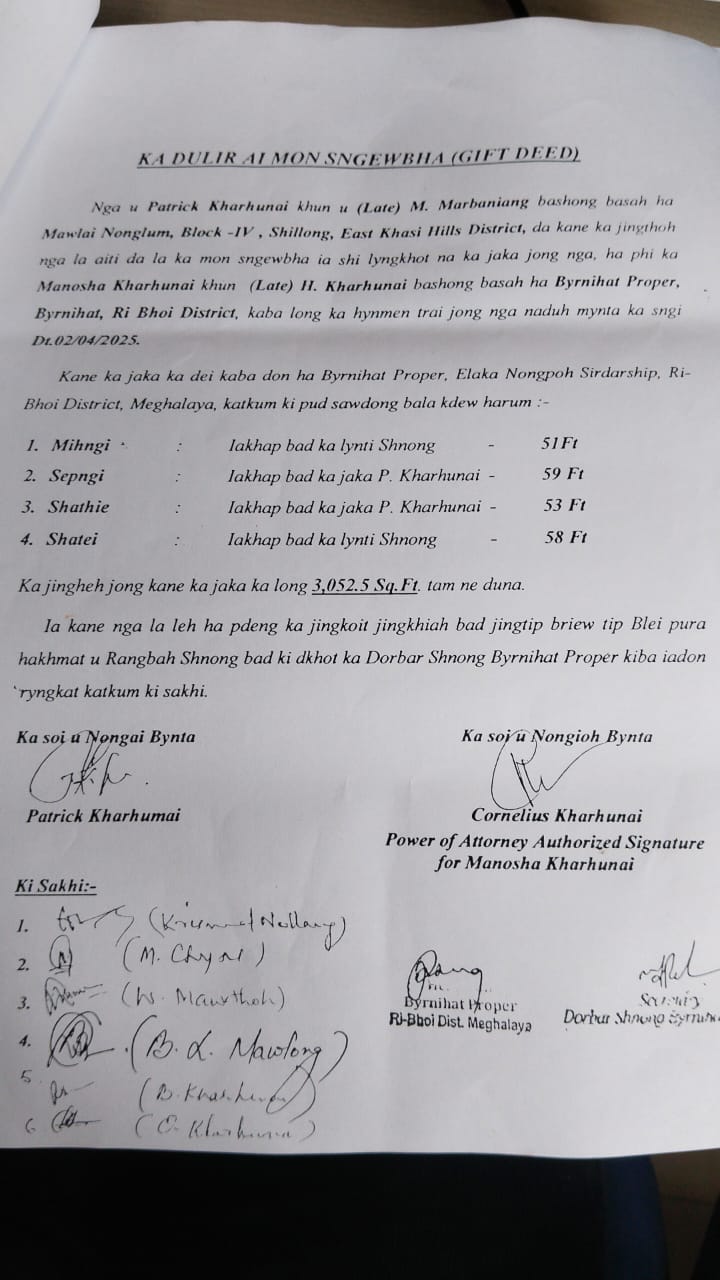 KA DULIR AI MON SNGEWBHA (GIFT DEED)
Nga u Patrick Kharhunai khun u (Late) M. Marbaniang bashong basah ha
Mawlai Nonglum, Block -IV , Shillong, East Khasi Hills District, da kane ka jingthoh
nga la aiti da la ka mon sngewbha ia shi lyngkhot na ka jaka jong nga, ha phi ka
Manosha Kharhunai khun (Late) H. Kharhunai bashong basah ha Byrnihat Proper,
Byrnihat, Ri Bhoi District, kaba long ka hynmen trai jong nga naduh mynta ka sngi
Dt.02/04/2025.
Kane ka jaka ka dei kaba don ha Byrnihat Proper, Elaka Nongpoh Sirdarship, Ri-
Bhoi District, Meghalaya, katkum ki pud sawdong bala kdew harum :-
1. Mihngi : Iakhap bad ka lynti Shnong - 51Ft
2. Sepngi : Iakhap bad ka jaka P. Kharhunai - 59 Ft
3. Shathie : Iakhap bad ka jaka P. Kharhunai - 53 Ft
4. Shatei : Iakhap bad ka lynti Shnong - 58 Ft
Ka jingheh jong kane ka jaka ka long 3,052.5 Sq.Ft. tam ne duna.
Ia kane nga la leh ha pdeng ka jingkoit jingkhiah bad jingtip briew tip Blei pura
hakhmat u Rangbah Shnong bad ki dkhot ka Dorbar Shnong Byrnihat Proper kiba iadon
ryngkat katkum ki sakhi.
Ka soi u Nongai Bynta Ka soi u Nongioh Bynta
Patrick Kharhumai Cornelius Kharhunai
Power of Attorney Authorized Signature
for Manosha Kharhunai
Ki Sakhi:-
1.
2. (M. Chyne)
3. (W. Mawthoh)
4. (B. L. Mawlong)
5 (B. Kharhunai)
6. (C. Kharhunai)
Byrnihat Proper
Ri-Bhoi Dist. Meghalaya
Dorbar Shnong